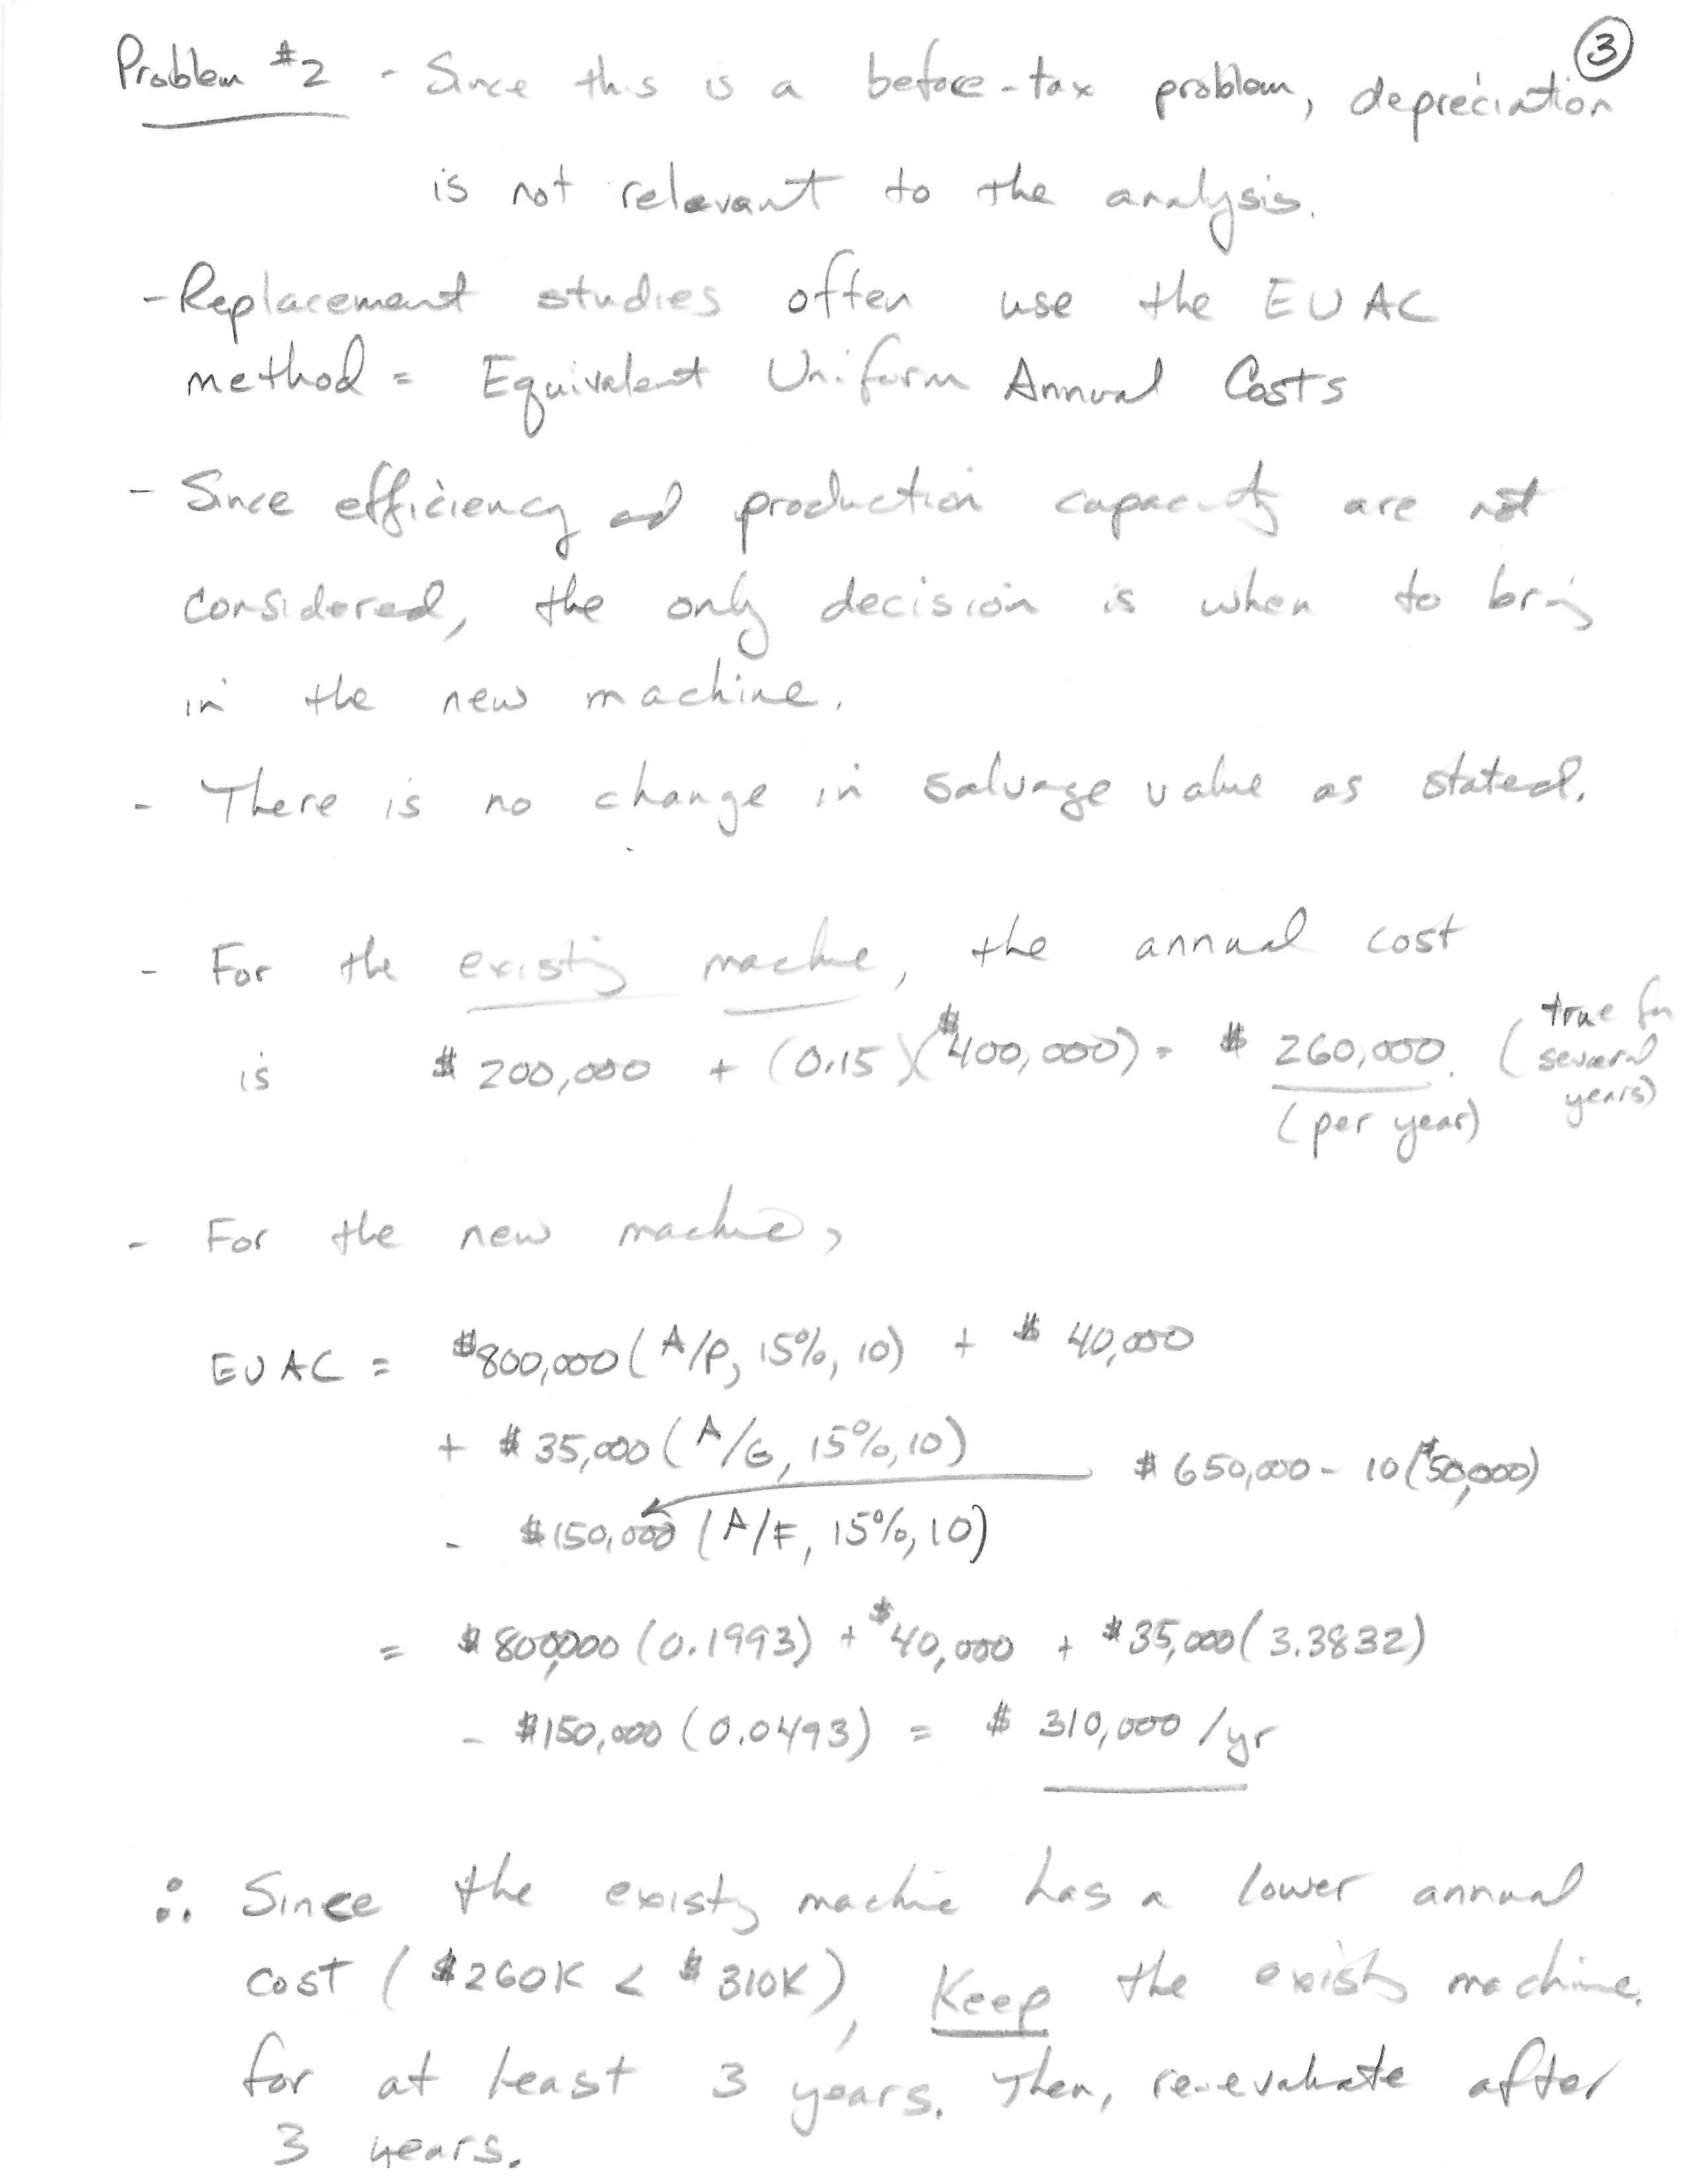 ③
Problem #2 - Since this is a before-tax problem, depreciation
is not relevant to the analysis.
- Replacement studies often use the EUAC
method = Equivalent Uniform Annual Costs
- Since efficiency and production capacity are not
considered, the only decision is when to bring
in the new machine.
- There is no change in salvage value as stated.
- For the existing machine, the annual cost
is $200,000 + (0.15)($400,000) = $260,000. (true for
several
years)
(per year)
- For the new machine,
EUAC = $800,000 (A/P, 15%, 10) + $40,000
+ $35,000 (A/G, 15%, 10)
$650,000 - 10($50,000)
- $150,000 (A/F, 15%, 10)
= $800,000 (0.1993) + $40,000 + $35,000 (3.3832)
- $150,000 (0.0493) = $310,000/yr
∴ Since the existing machine has a lower annual
cost ($260K < $310K), Keep the existing machine.
for at least 3 years. Then, re-evaluate after
3 years.